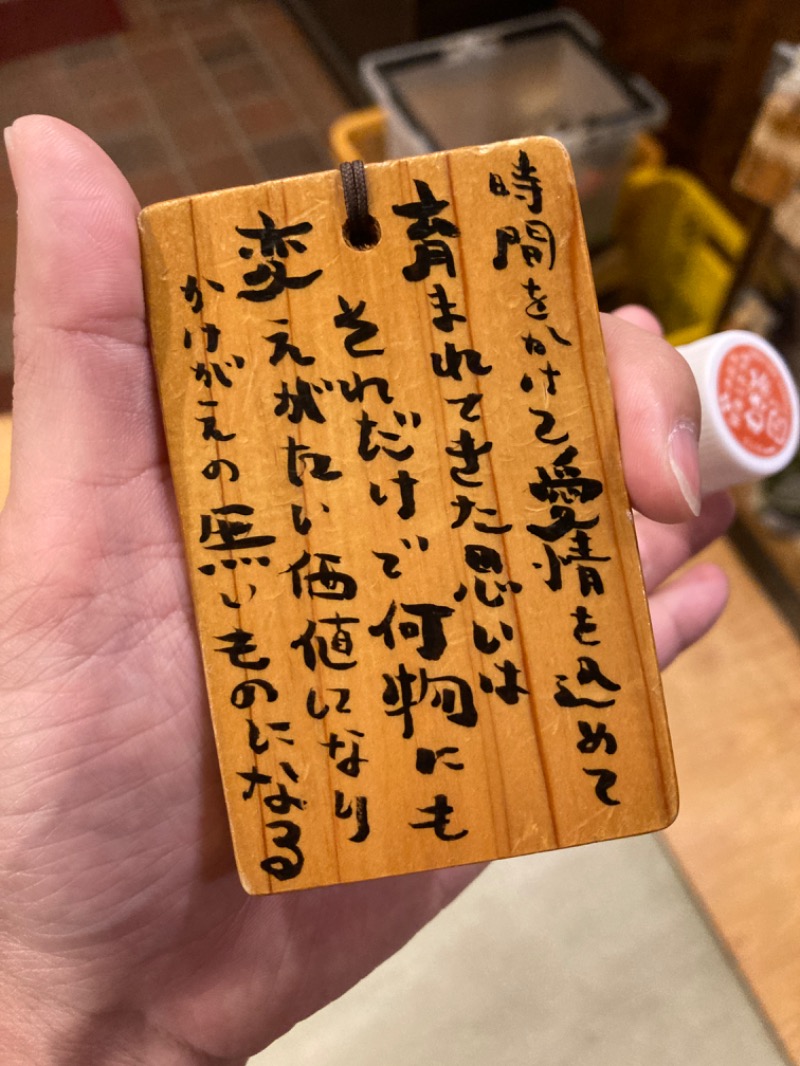 時間をかけて愛情を込めて
育まれてきた思いは
それだけで何物にも
変えがたい価値になり
かけがえの無いものになる